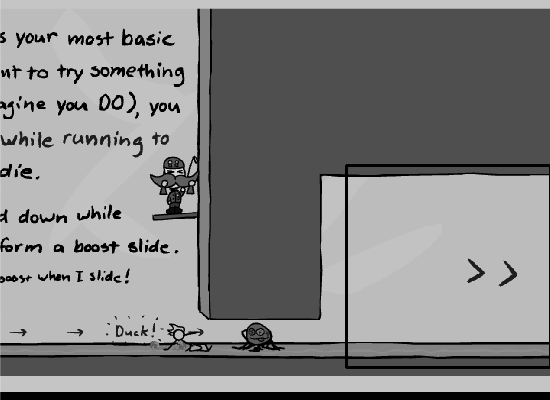 s your most basic
nt to try something
agine you DO), you
while running to
die.
d down while
form a boost slide.
boost when I slide!
Duck!